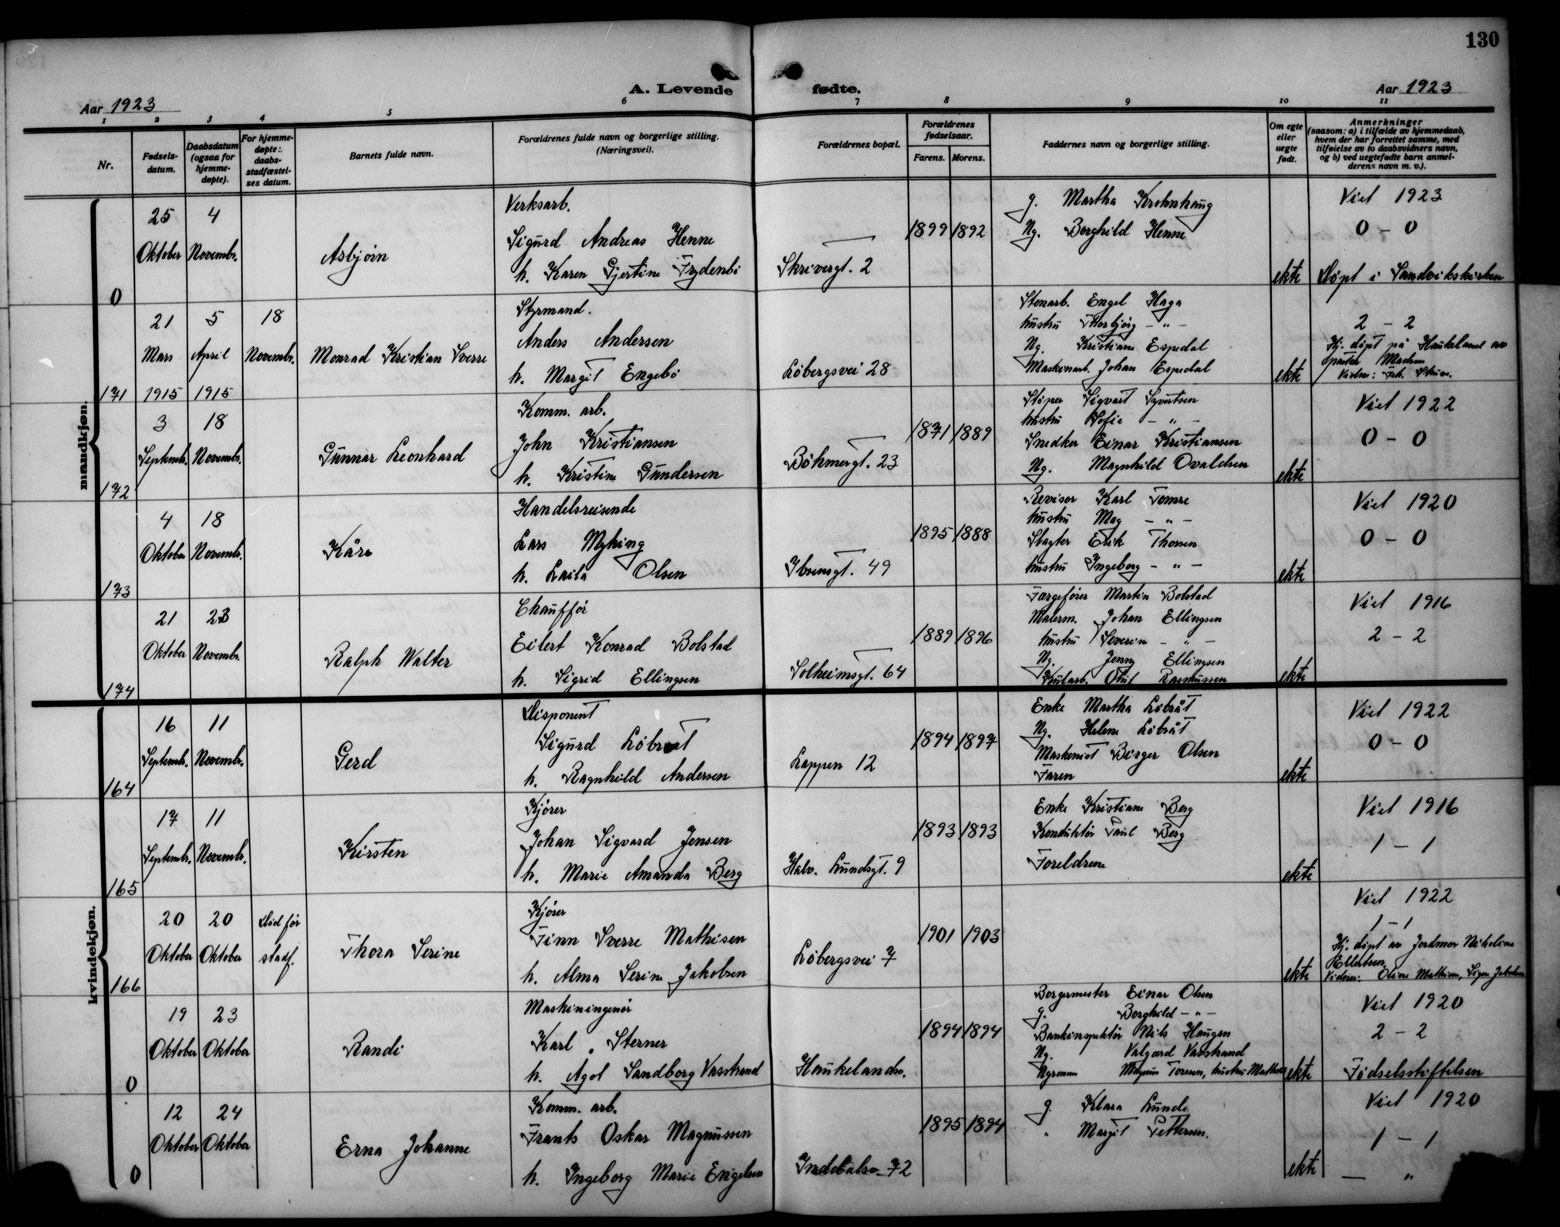 130
A. Levende fødte.
Aar 1923
Aar 1923
1 2 3 4 5 6 7 8 9 10 11
Nr.
Fødsels-
datum.
Daabsdatum
(ogsaa for
hjemme-
døpte).
For hjemme-
døpte:
daabs-
stadfæstel-
ses datum.
Barnets fulde navn.
Forældrenes fulde navn og borgerlige stilling.
(Næringsvei).
Forældrenes bopæl.
Forældrenes
fødselsaar.
Farens. Morens.
Faddernes navn og borgerlige stilling.
Om egte
eller
uegte
født.
Anmerkninger
(saasom: a) i tilfælde av hjemmedaab,
hvem der har forrettet samme, med
tilføielse av to daabsvidners navn,
og b) ved uegtefødte barn anmel-
derens navn m. v.).
mandkjøn.
0
25 Oktober
4 Novembr.
Asbjørn
Verksarb.
Sigurd Andreas Henne
h. Karen Gjertine Frydenbö
Skrivergt. 2
1899 1892
g. Martha Krohnhaug
Ug. Borghild Henne
ekte
Viet 1923
0 - 0
Döpt i Sandvikskirken
131
21 Mars 1915
5 April 1915
18 Novembr.
Monrad Kristian Sverre
Styrmand.
Anders Andersen
h. Margit Engebö
Löbergsvei 28
Stenarb. Engel Haga
hustru Thorbjørg - " -
Ug. Kristiane Espedal
Maskinarb. Johan Espedal
ekte
2 - 2
Hj. döpt på Haukeland av
172
3 Septemb.
18 Novemb.
Gunnar Leonhard
Komm. arb.
John Kristiansen
h. Kristine Gundersen
Böhmergt. 23
1871 1889
Støper Sigvart Syvertsen
hustru Sofie - " -
Snedker Einar Kristiansen
Ug. Magnhild Ovaldsen
ekte
Viet 1922
0 - 0
173
4 Oktober
18 Novemb.
Kåre
Handelsreisende
Lars Myking
h. Laila Olsen
Ibsensgt. 49
1895 1888
Revisor Karl Tomre
hustru Mag - " -
Slagter Erik Thomsen
hustru Ingeborg - " -
ekte
Viet 1920
0 - 0
174
21 Oktober
23 Novemb.
Ralph Walter
Chauffør
Eilert Konrad Bolstad
h. Sigrid Ellingsen
Solheimsgt. 64
1889 1896
Færgefører Martin Bolstad
Malerm. Johan Ellingsen
hustru Severin - " -
Ug. Jenny Ellingsen
Rasmussen
ekte
Viet 1916
2 - 2
kvindekjøn.
164
16 Septemb.
11 Novemb.
Gerd
Disponent
Sigurd Löbråt
h. Ragnhild Andersen
Lappen 12
1894 1897
Enke Martha Löbråt
Ug. Helene Löbråt
Maskinist Birger Olsen
Faren
ekte
Viet 1922
0 - 0
165
17 Septemb.
11 Novemb.
Kirsten
Kjører
Johan Sigvard Jensen
h. Marie Amanda Berg
Halv. Lundsgt. 9
1893 1893
Enke Kristiane Berg
Konduktör Paul Berg
Foreldrene
ekte
Viet 1916
1 - 1
166
20 Oktober
20 Oktober
Död før
stadf.
Thora Serine
Kjører
Finn Sverre Mathisen
h. Alma Serine Jakobsen
Löbergsvei 7
1901 1903
ekte
Viet 1922
1 - 1
Hj. döpt av Jordmor Nikoline
Ellertsen
Vidner: Oline Mathisen, Signe Jakobsen
0
19 Oktober
23 Oktober
Randi
Maskiningeniör
Karl Sterner
h. Agot Sandborg Vasstrand
Haukelandsv.
1894 1894
Borgermester Einar Olsen
g. Borghild - " -
Bankinspektör Nils Haugen
Ug. Valgerd Vasstrand
ekte
Viet 1920
2 - 2
Fødselsstiftelsen
0
12 Oktober
24 Oktober
Erna Johanne
Komm. arb.
Frants Oskar Magnussen
h. Ingeborg Marie Engelsen
Inddalsv. 72
1895 1894
g. Klara Lunde
" Margit Pettersen.
ekte
Viet 1920
1 - 1
— "